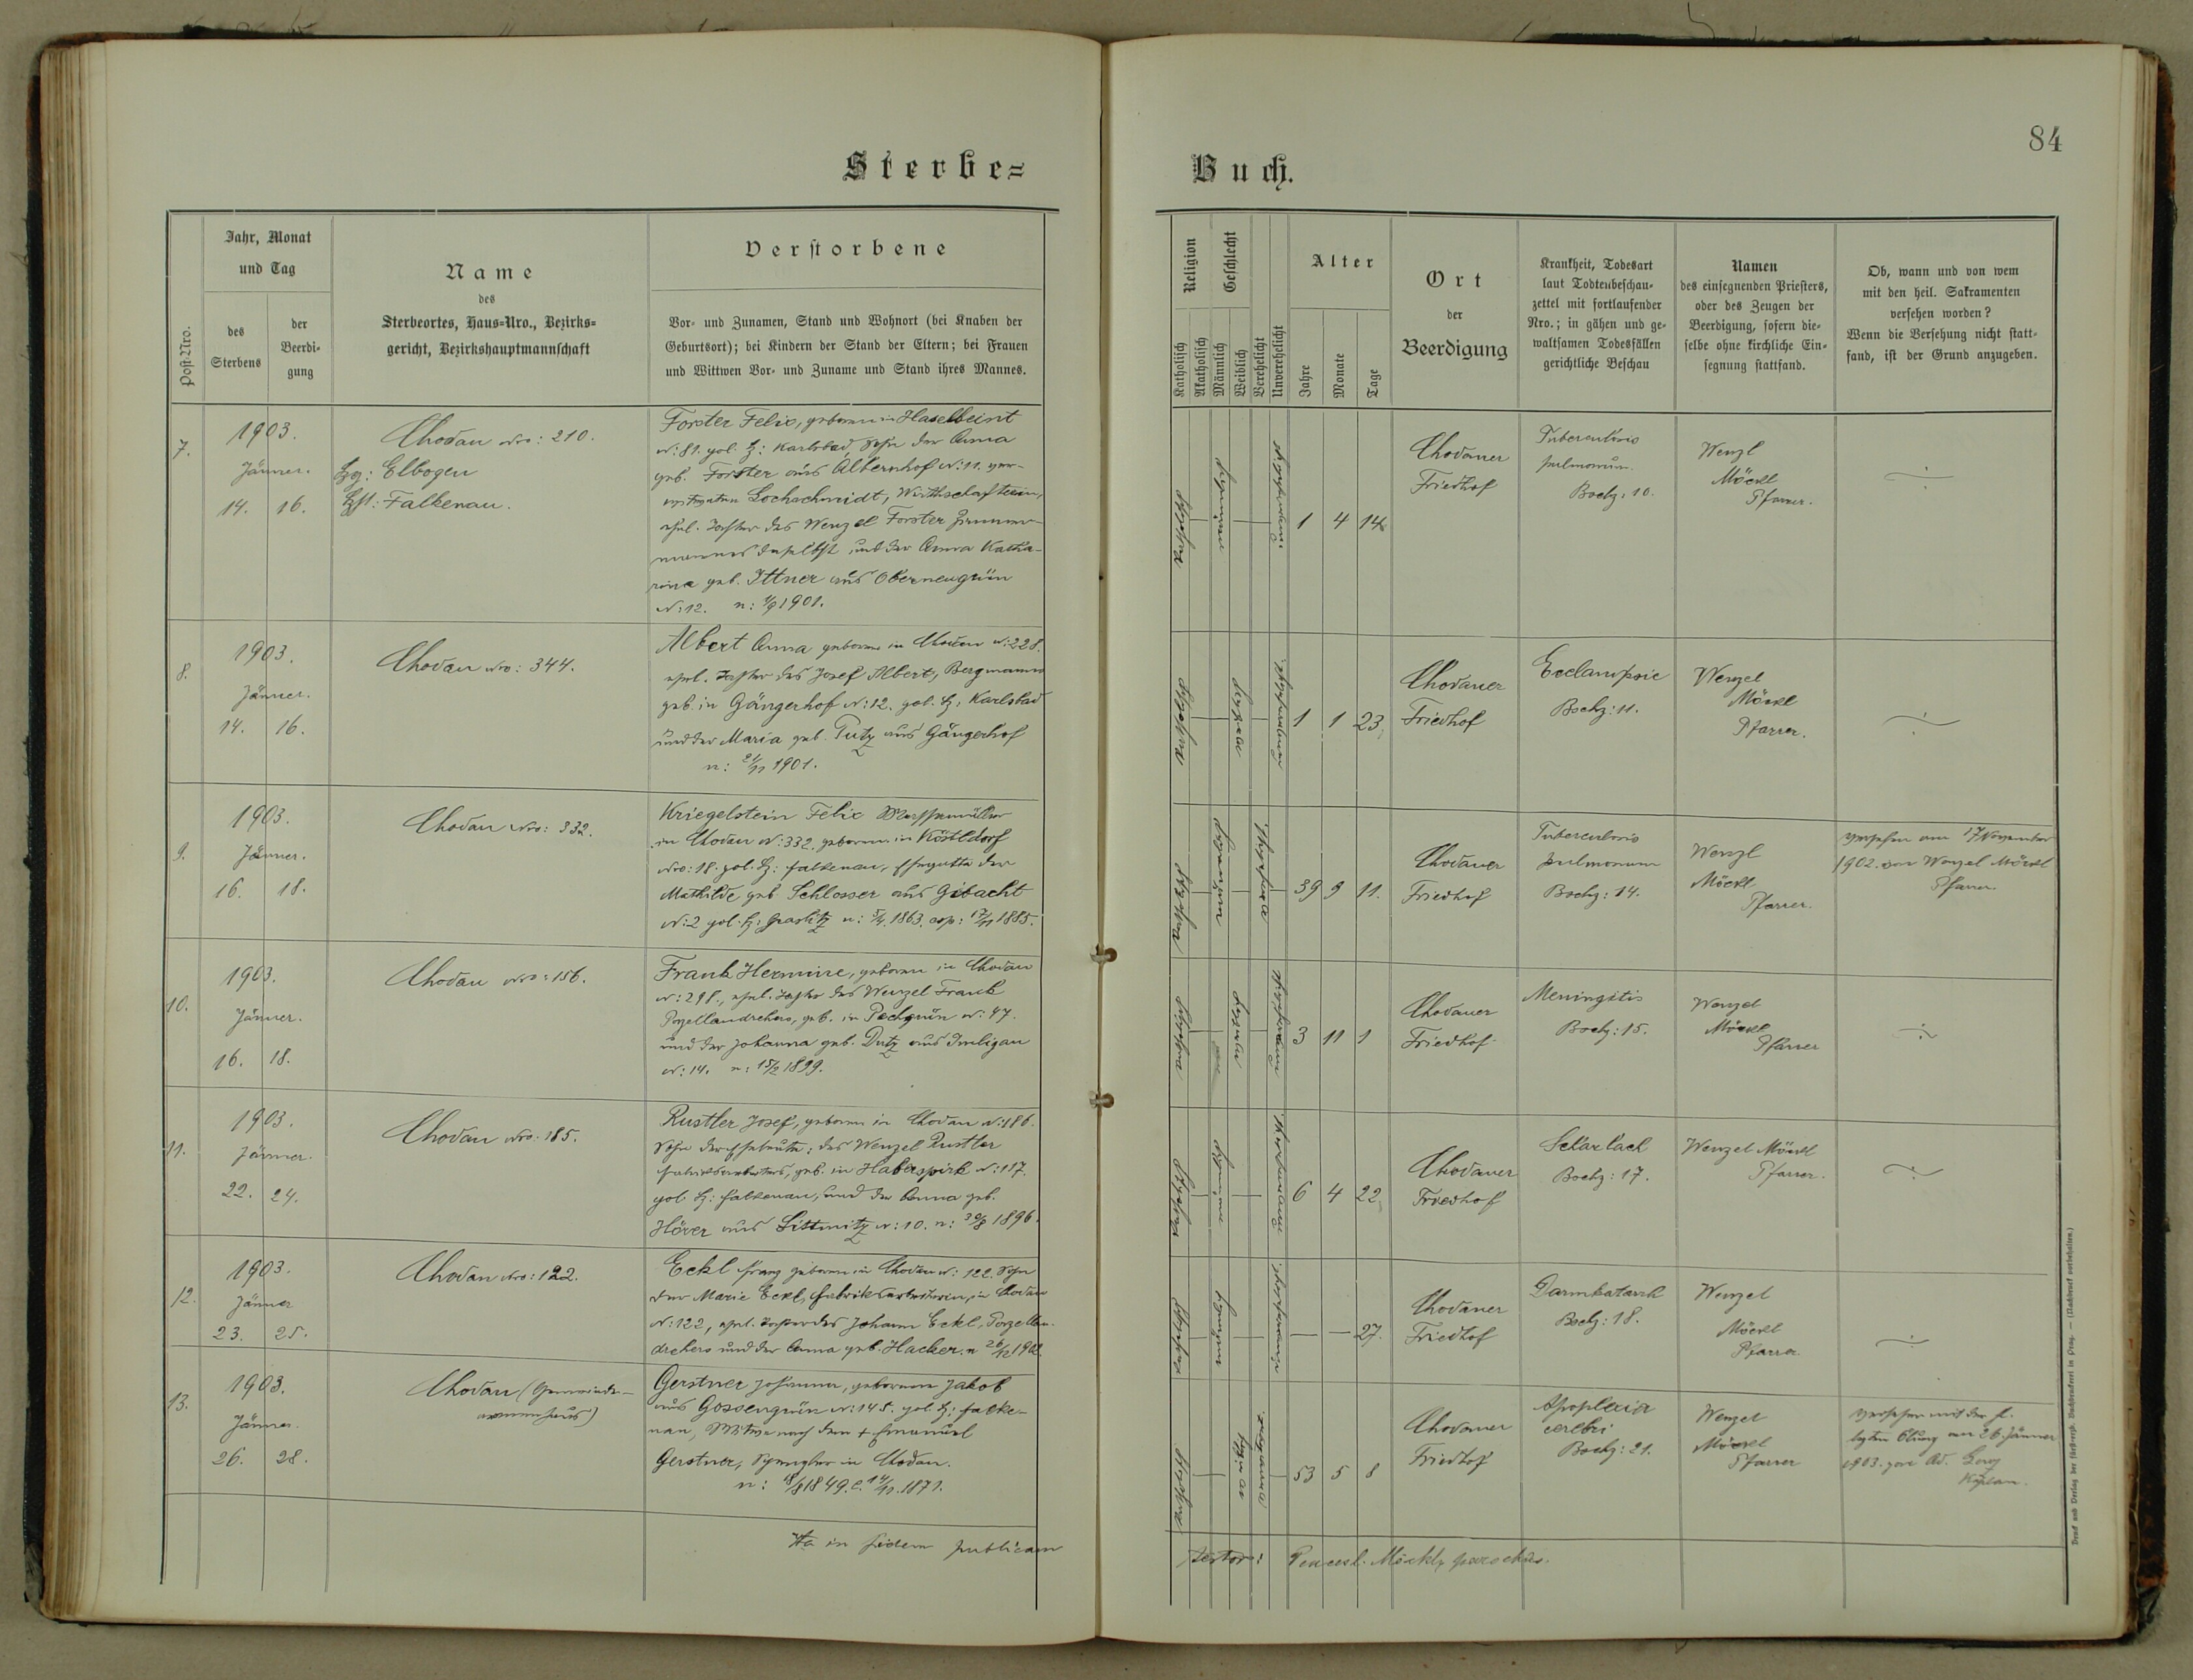 84
Sterbe=
Buch.
Post-Nro.
Jahr, Monat
und Tag
des
Sterbens
der
Beerdi-
gung
Name
des
Sterbeortes, Haus-Nro., Bezirks-
gericht, Bezirkshauptmannschaft
Verstorbene
Vor- und Zunamen, Stand und Wohnort (bei Knaben der
Geburtsort); bei Kindern der Stand der Eltern; bei Frauen
und Wittwen Vor- und Zuname und Stand ihres Mannes.
Religion
Katholisch
Akatholisch
Geschlecht
Männlich
Weiblich
Verehelicht
Unverehelicht
Alter
Jahre
Monate
Tage
Ort
der
Beerdigung
Krankheit, Todesart
laut Todtenbeschau-
zettel mit fortlaufender
Nro.; in gähen und ge-
waltsamen Todesfällen
gerichtliche Beschau
Namen
des einsegnenden Priesters,
oder des Zeugen der
Beerdigung, sofern die-
selbe ohne kirchliche Ein-
segnung stattfand.
Ob, wann und von wem
mit den heil. Sakramenten
versehen worden?
Wenn die Versehung nicht statt-
fand, ist der Grund anzugeben.
7.
1903.
Jänner.
14. 16.
Chodau Nro: 210.
Bzg: Elbogen
Bzh: Falkenau.
Forster Felix, geboren in
N: 81. pol. Bz: Karlsbad, Sohn der Anna
geb. Forster aus Albernhof N: 11. ver-
Lochschmidt, Wirthschafterin,
ehel. Tochter des Wenzel Forster Zimmer-
mannes daselbst und der Anna Katha-
rina geb. Ittner aus Oberneugrün
N: 12. n: 1/9 1901.
katholisch
männlich
1 4 14
Chodauer
Friedhof
Tuberculosis
pulmonum.
Bschz: 10.
Wenzl
Möckl
Pfarrer.
8.
1903.
Jänner.
14. 16.
Chodau Nro: 344.
Albert Anna geboren in Chodau N: 228.
ehel. Tochter des Josef Albert, Bergmann
geb. in Gängerhof N: 12. pol. Bz: Karlsbad
und der Maria geb. Putz aus Gängerhof
n: 21/11 1901.
katholisch
weiblich
1 1 23.
Chodauer
Friedhof
Eclampsie
Bschz: 11.
Wenzel
Möckl
Pfarrer.
9.
1903.
Jänner.
16. 18.
Chodau Nro: 332.
Kriegelstein Felix
in Chodau N: 332, geboren in Köstldorf
Nro: 18. pol. Bz: Falkenau, Ehegatte der
Mathilde geb. Schlosser aus Gibacht
N: 2 pol. Bz: Graslitz n: 5/4 1863. cop: 17/11 1885.
katholisch
männlich
39 9 11.
Chodauer
Friedhof
Tuberculosis
pulmonum
Bschz: 14.
Wenzl
Möckl
Pfarrer.
versehen am 17 November
1902. von Wenzel Möckl
Pfarrer.
10.
1903.
Jänner.
16. 18.
Chodau Nro: 156.
Frank Hermine, geboren in Chodau
N: 298., ehel. Tochter des Wenzel Frank
Porzellandrehers, geb. in Pechgrün N: 47.
und der Johanna geb. Dutz aus Imligau
N: 14. n: 15/2 1899.
katholisch
weiblich
3 11 1
Chodauer
Friedhof
Meningitis
Bschz: 15.
Wenzel
Möckl
Pfarrer
11.
1903.
Jänner.
22. 24.
Chodau Nro: 185.
Rustler Josef, geboren in Chodau N: 186.
Sohn der Eheleute: des Wenzel Rustler
Fabriksarbeiters, geb. in Haberspirk N: 117.
pol. Bz: Falkenau, und der Anna geb.
Höver aus Littmitz N: 10. n: 30/8 1896.
katholisch
männlich
6 4 22.
Chodauer
Friedhof
Scharlach
Bschz: 17.
Wenzel Möckl
Pfarrer.
12.
1903.
Jänner
23. 25.
Chodau Nro: 122.
Eckl Franz geboren in Chodau N: 122. Sohn
der Marie Eckl, Fabriksarbeiterin, in Chodau
N: 122, ehel. Tochter des Johann Eckl, Porzellan-
drehers und der Anna geb. Hacker. n 26/12 1902.
katholisch
männlich
— — 27.
Chodauer
Friedhof
Darmkatarrh
Bschz: 18.
Wenzel
Möckl
Pfarrer
13.
1903.
Jänner.
26. 28.
Chodau (Gemeinde-
armenhaus)
Gerstner Johanna, geborene Jakob
aus Gossengrün N: 145. pol. Bz: Falke-
nau, Witwe nach dem + Emanuel
Gerstner, Spengler in Chodau.
n: 18/8 1849. c. 14/11. 1871.
katholisch
weiblich
53 5 8
Chodauer
Friedhof
Apoplexia
cerebri
Bschz: 21.
Wenzel
Möckl
Pfarrer
versehen mit der hl.
letzten Ölung am 26. Jänner
1903. Georg
Kaplan.
Ita in fidem publicam
testor: Wencesl. Möckl, parochus.
Druck und Verlag der fürsterzb. Buchdruckerei in Prag. — (Nachdruck vorbehalten.)